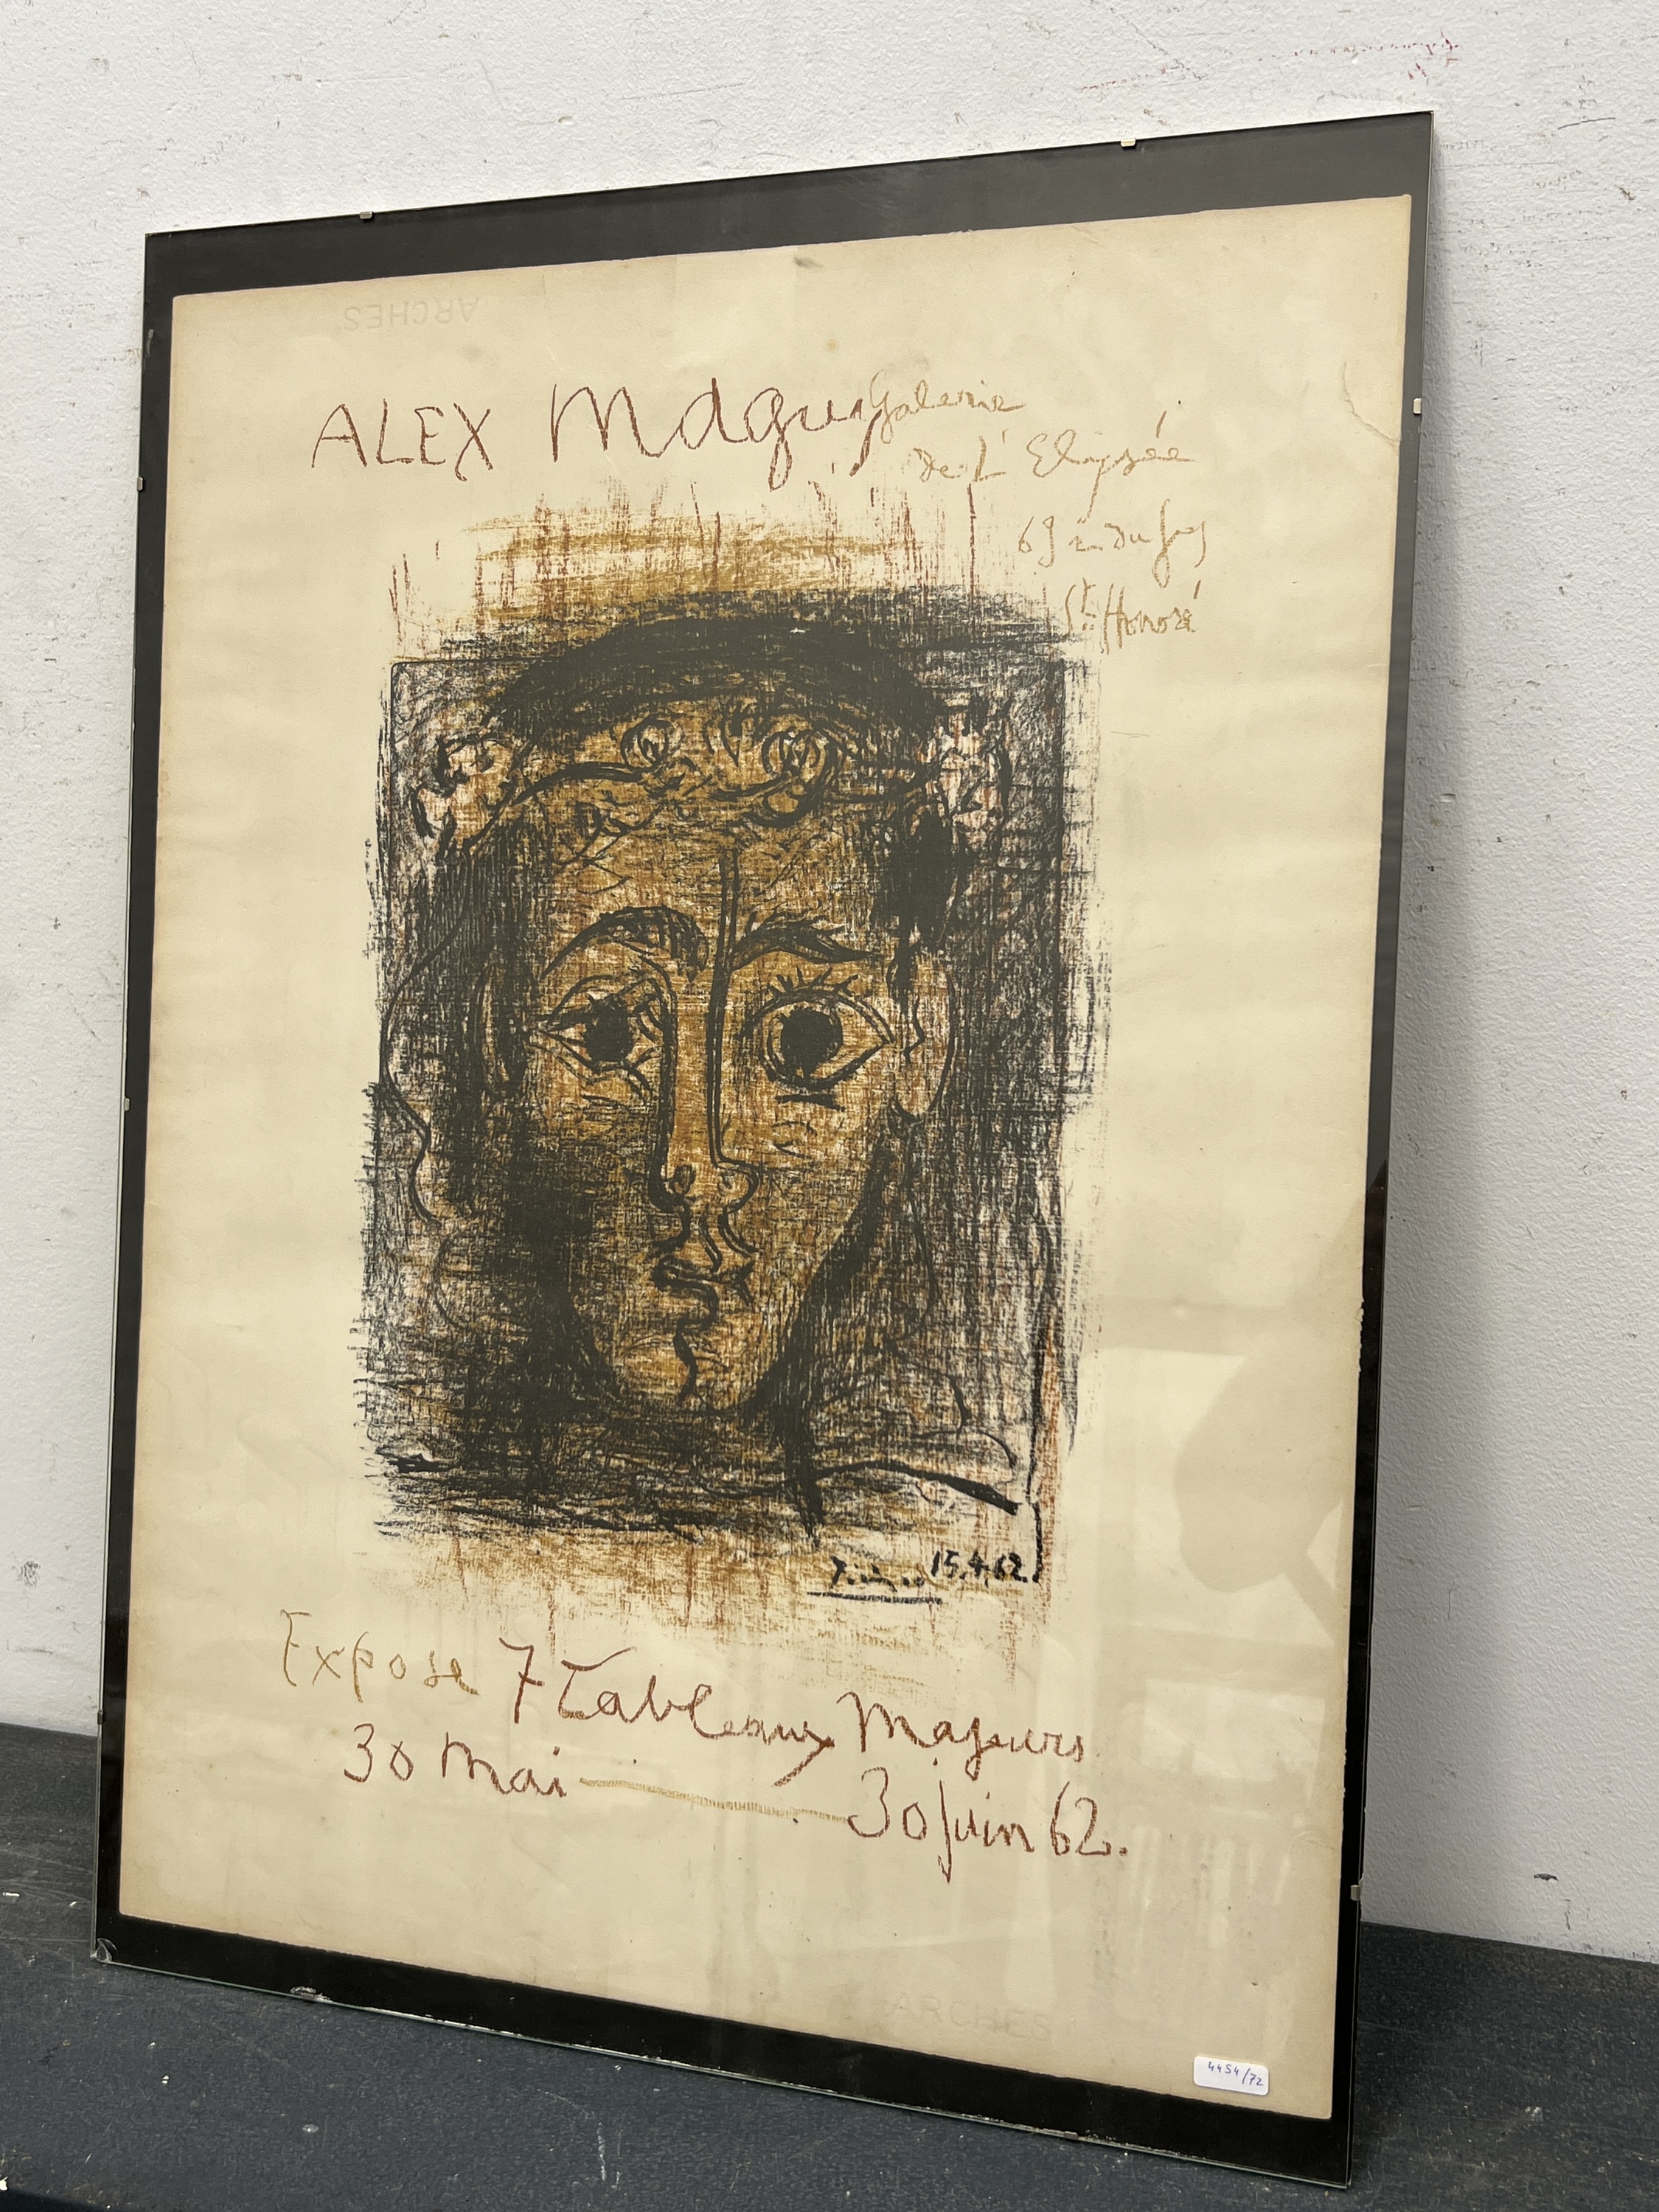 ARCHES
ALEX Maguy Galerie
de L'Elysée
69 rue du fbg
St Honoré
Picasso 15.4.62.
Expose 7 tableaux Majeurs
30 Mai — 30 juin 62.
ARCHES
4454/72